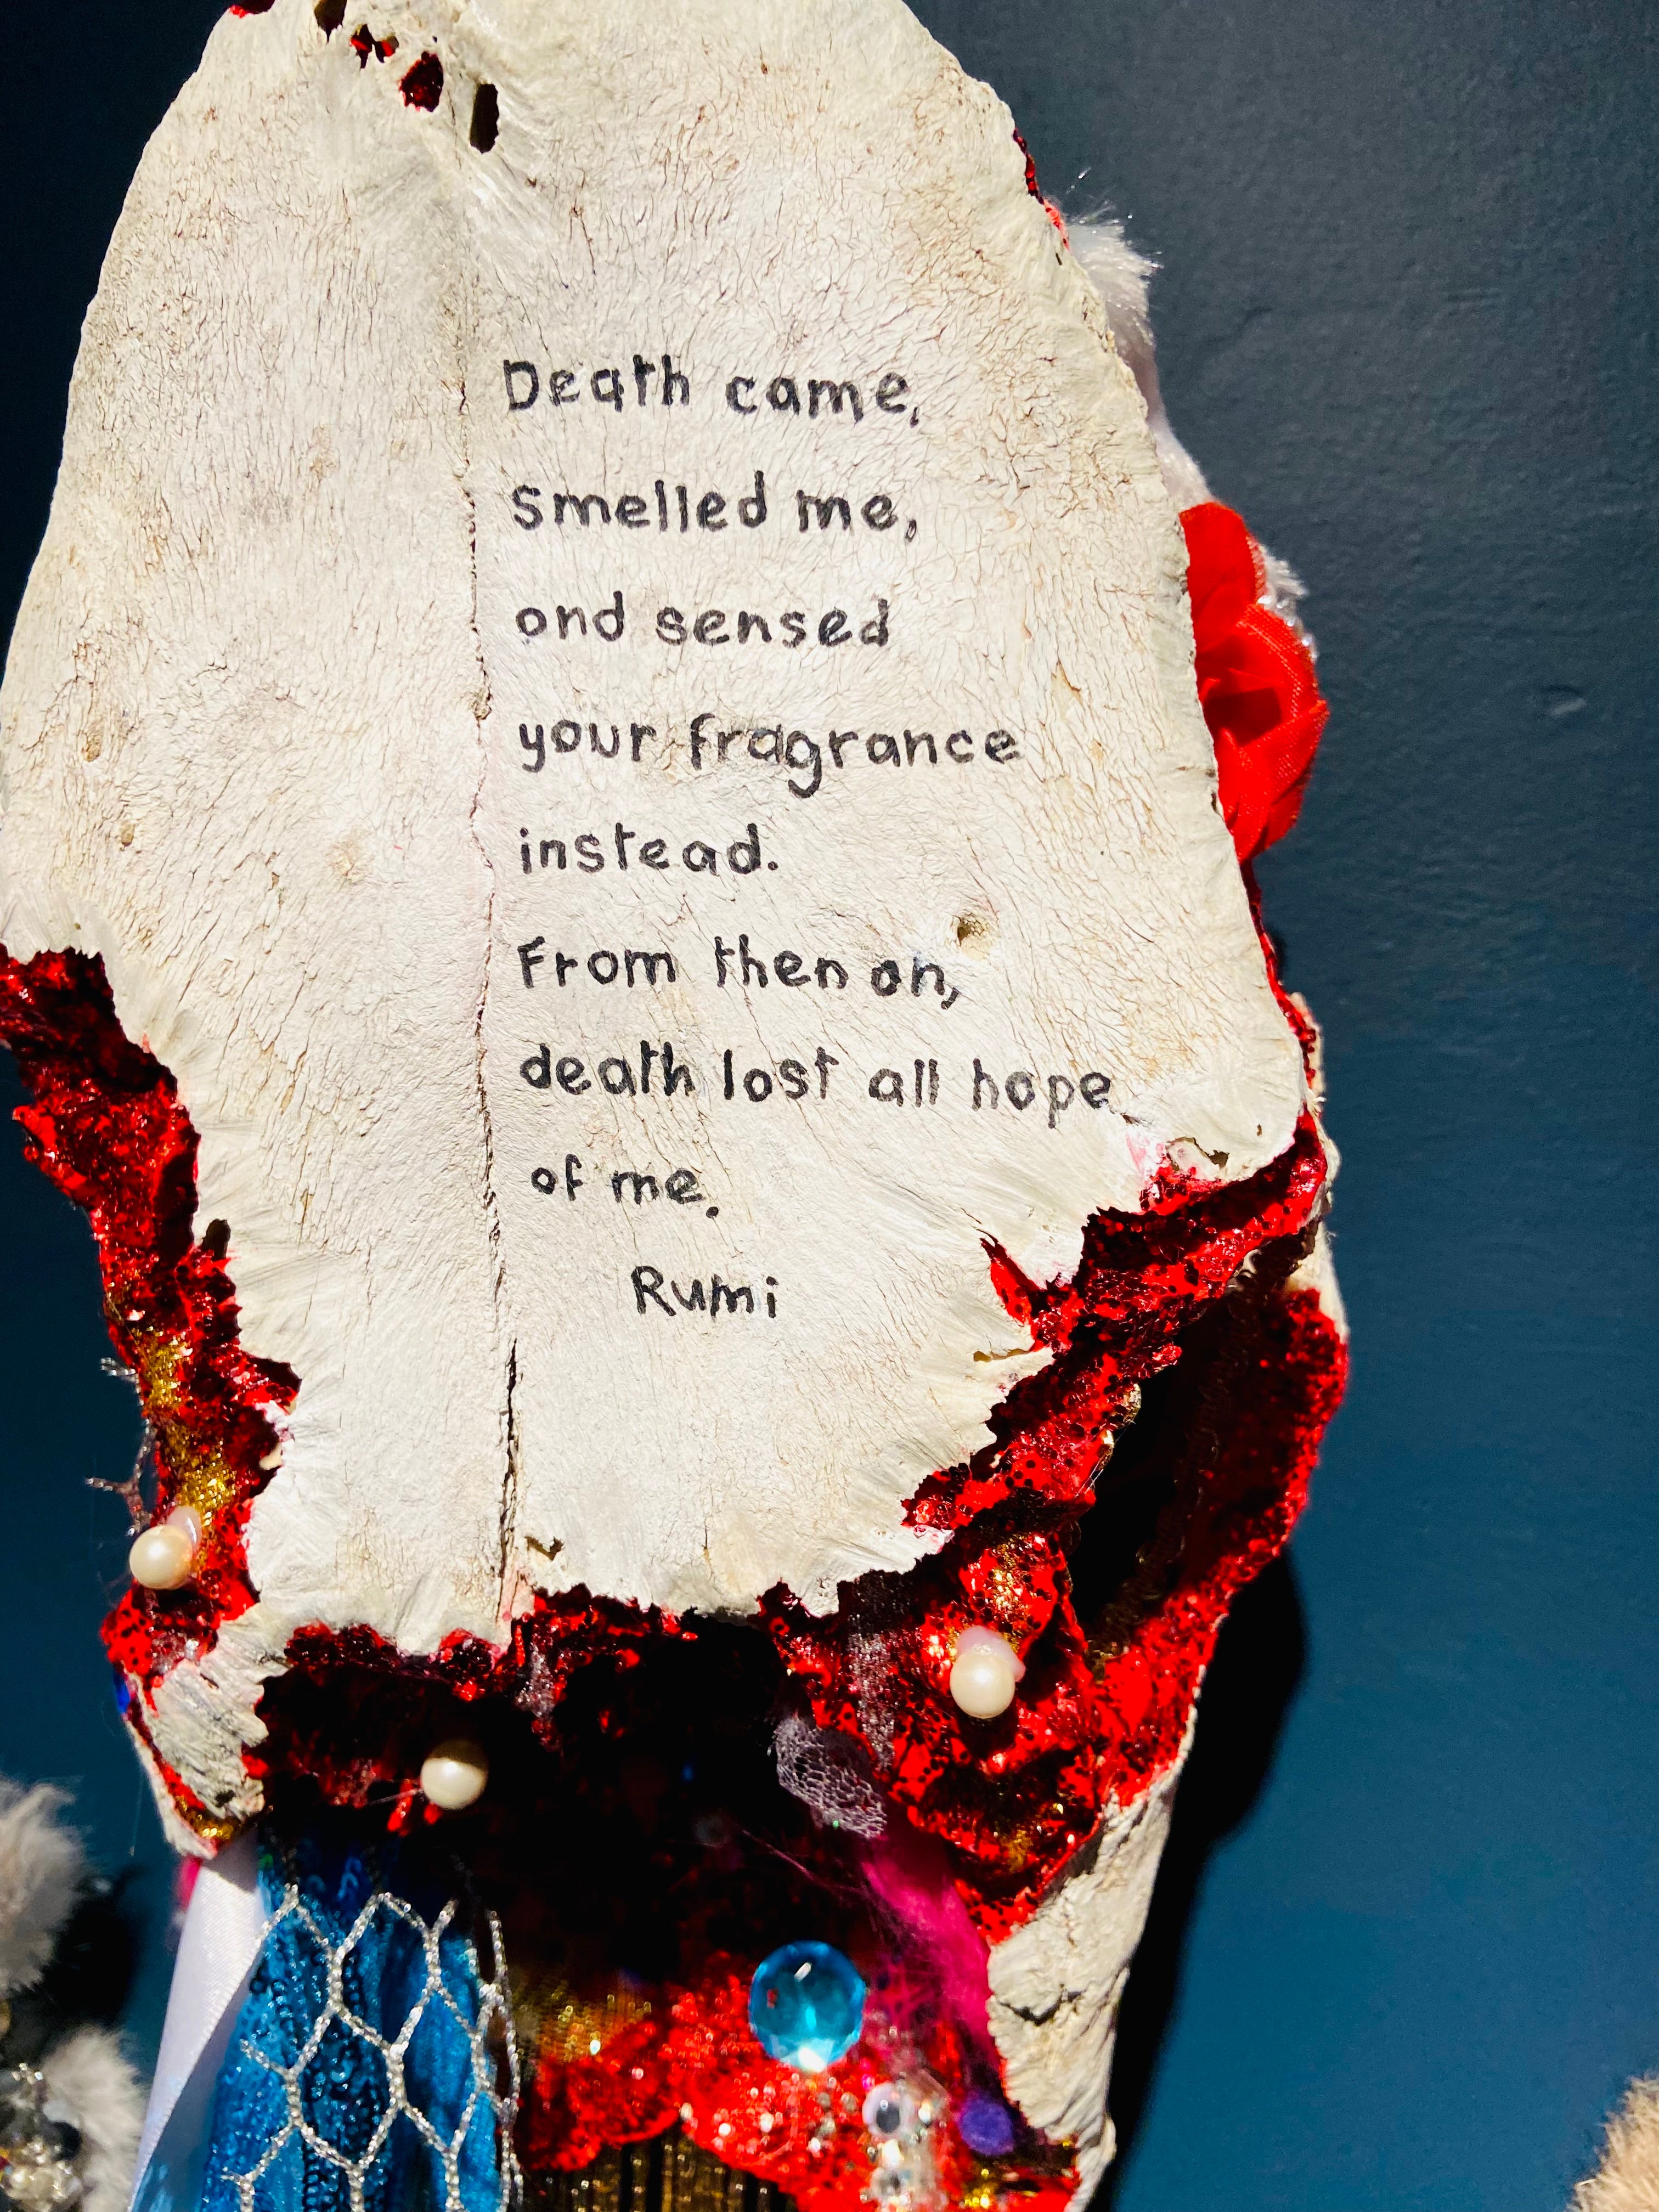 Death came,
Smelled me,
and sensed
your fragrance
instead.
From then on,
death lost all hope
of me.
Rumi